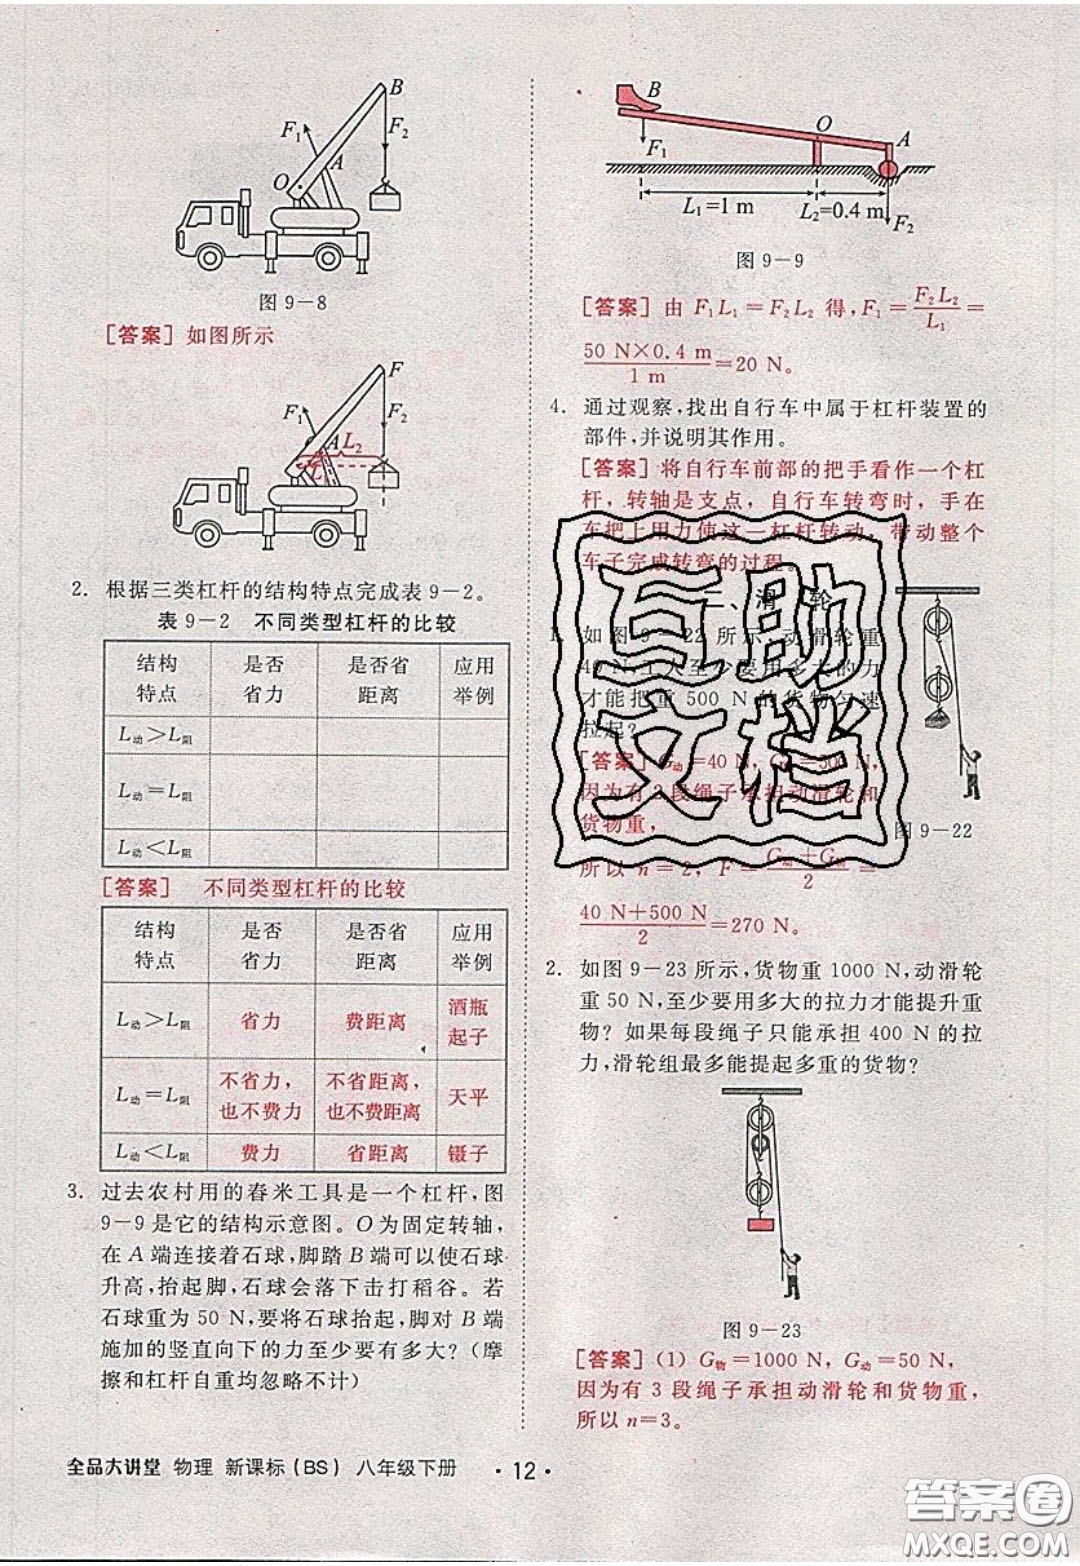 B
F₁
F₂
A
O
图9-8
[答案]如图所示
F
F₁
F₂
A
L₂
L₁
2. 根据三类杠杆的结构特点完成表9-2。
表9-2 不同类型杠杆的比较
结构特点 是否省力 是否省距离 应用举例
L动＞L阻
L动＝L阻
L动＜L阻
[答案] 不同类型杠杆的比较
结构特点 是否省力 是否省距离 应用举例
L动＞L阻 省力 费距离 酒瓶起子
L动＝L阻 不省力，也不费力 不省距离，也不费距离 天平
L动＜L阻 费力 省距离 镊子
3. 过去农村用的舂米工具是一个杠杆,图
9-9是它的结构示意图。O为固定转轴,
在A端连接着石球,脚踏B端可以使石球
升高,抬起脚,石球会落下击打稻谷。若
石球重为50 N,要将石球抬起,脚对B端
施加的竖直向下的力至少要有多大?(摩
擦和杠杆自重均忽略不计)
B
O
A
F₁
L₁=1 m
L₂=0.4 m
F₂
图9-9
[答案] 由 F₁L₁=F₂L₂ 得,F₁=F₂L₂/L₁=
50 N×0.4 m/1 m=20 N。
4. 通过观察,找出自行车中属于杠杆装置的
部件,并说明其作用。
[答案]将自行车前部的把手看作一个杠
杆，转轴是支点，自行车转弯时，手在
车把上用力使这一杠杆转动，带动整个
车子完成转弯的过程。
二、滑 轮
1. 如图9-22所示,动滑轮重
40 N,人至少要用多大的力
才能把重500 N的货物匀速
拉起?
[答案]G动=40 N,G物=500 N,
因为有2段绳子承担动滑轮和
货物重,
图9-22
所以 n=2, F=(G动+G物)/2=
(40 N+500 N)/2=270 N。
2. 如图9-23所示,货物重1000 N,动滑轮
重50 N,至少要用多大的拉力才能提升重
物? 如果每段绳子只能承担400 N的拉
力,滑轮组最多能提起多重的货物?
图9-23
[答案](1) G物=1000 N, G动=50 N,
因为有3段绳子承担动滑轮和货物重,
所以 n=3。
全品大讲堂 物理 新课标(BS) 八年级下册
·12·
互助文档
答案圈
MXQE.COM